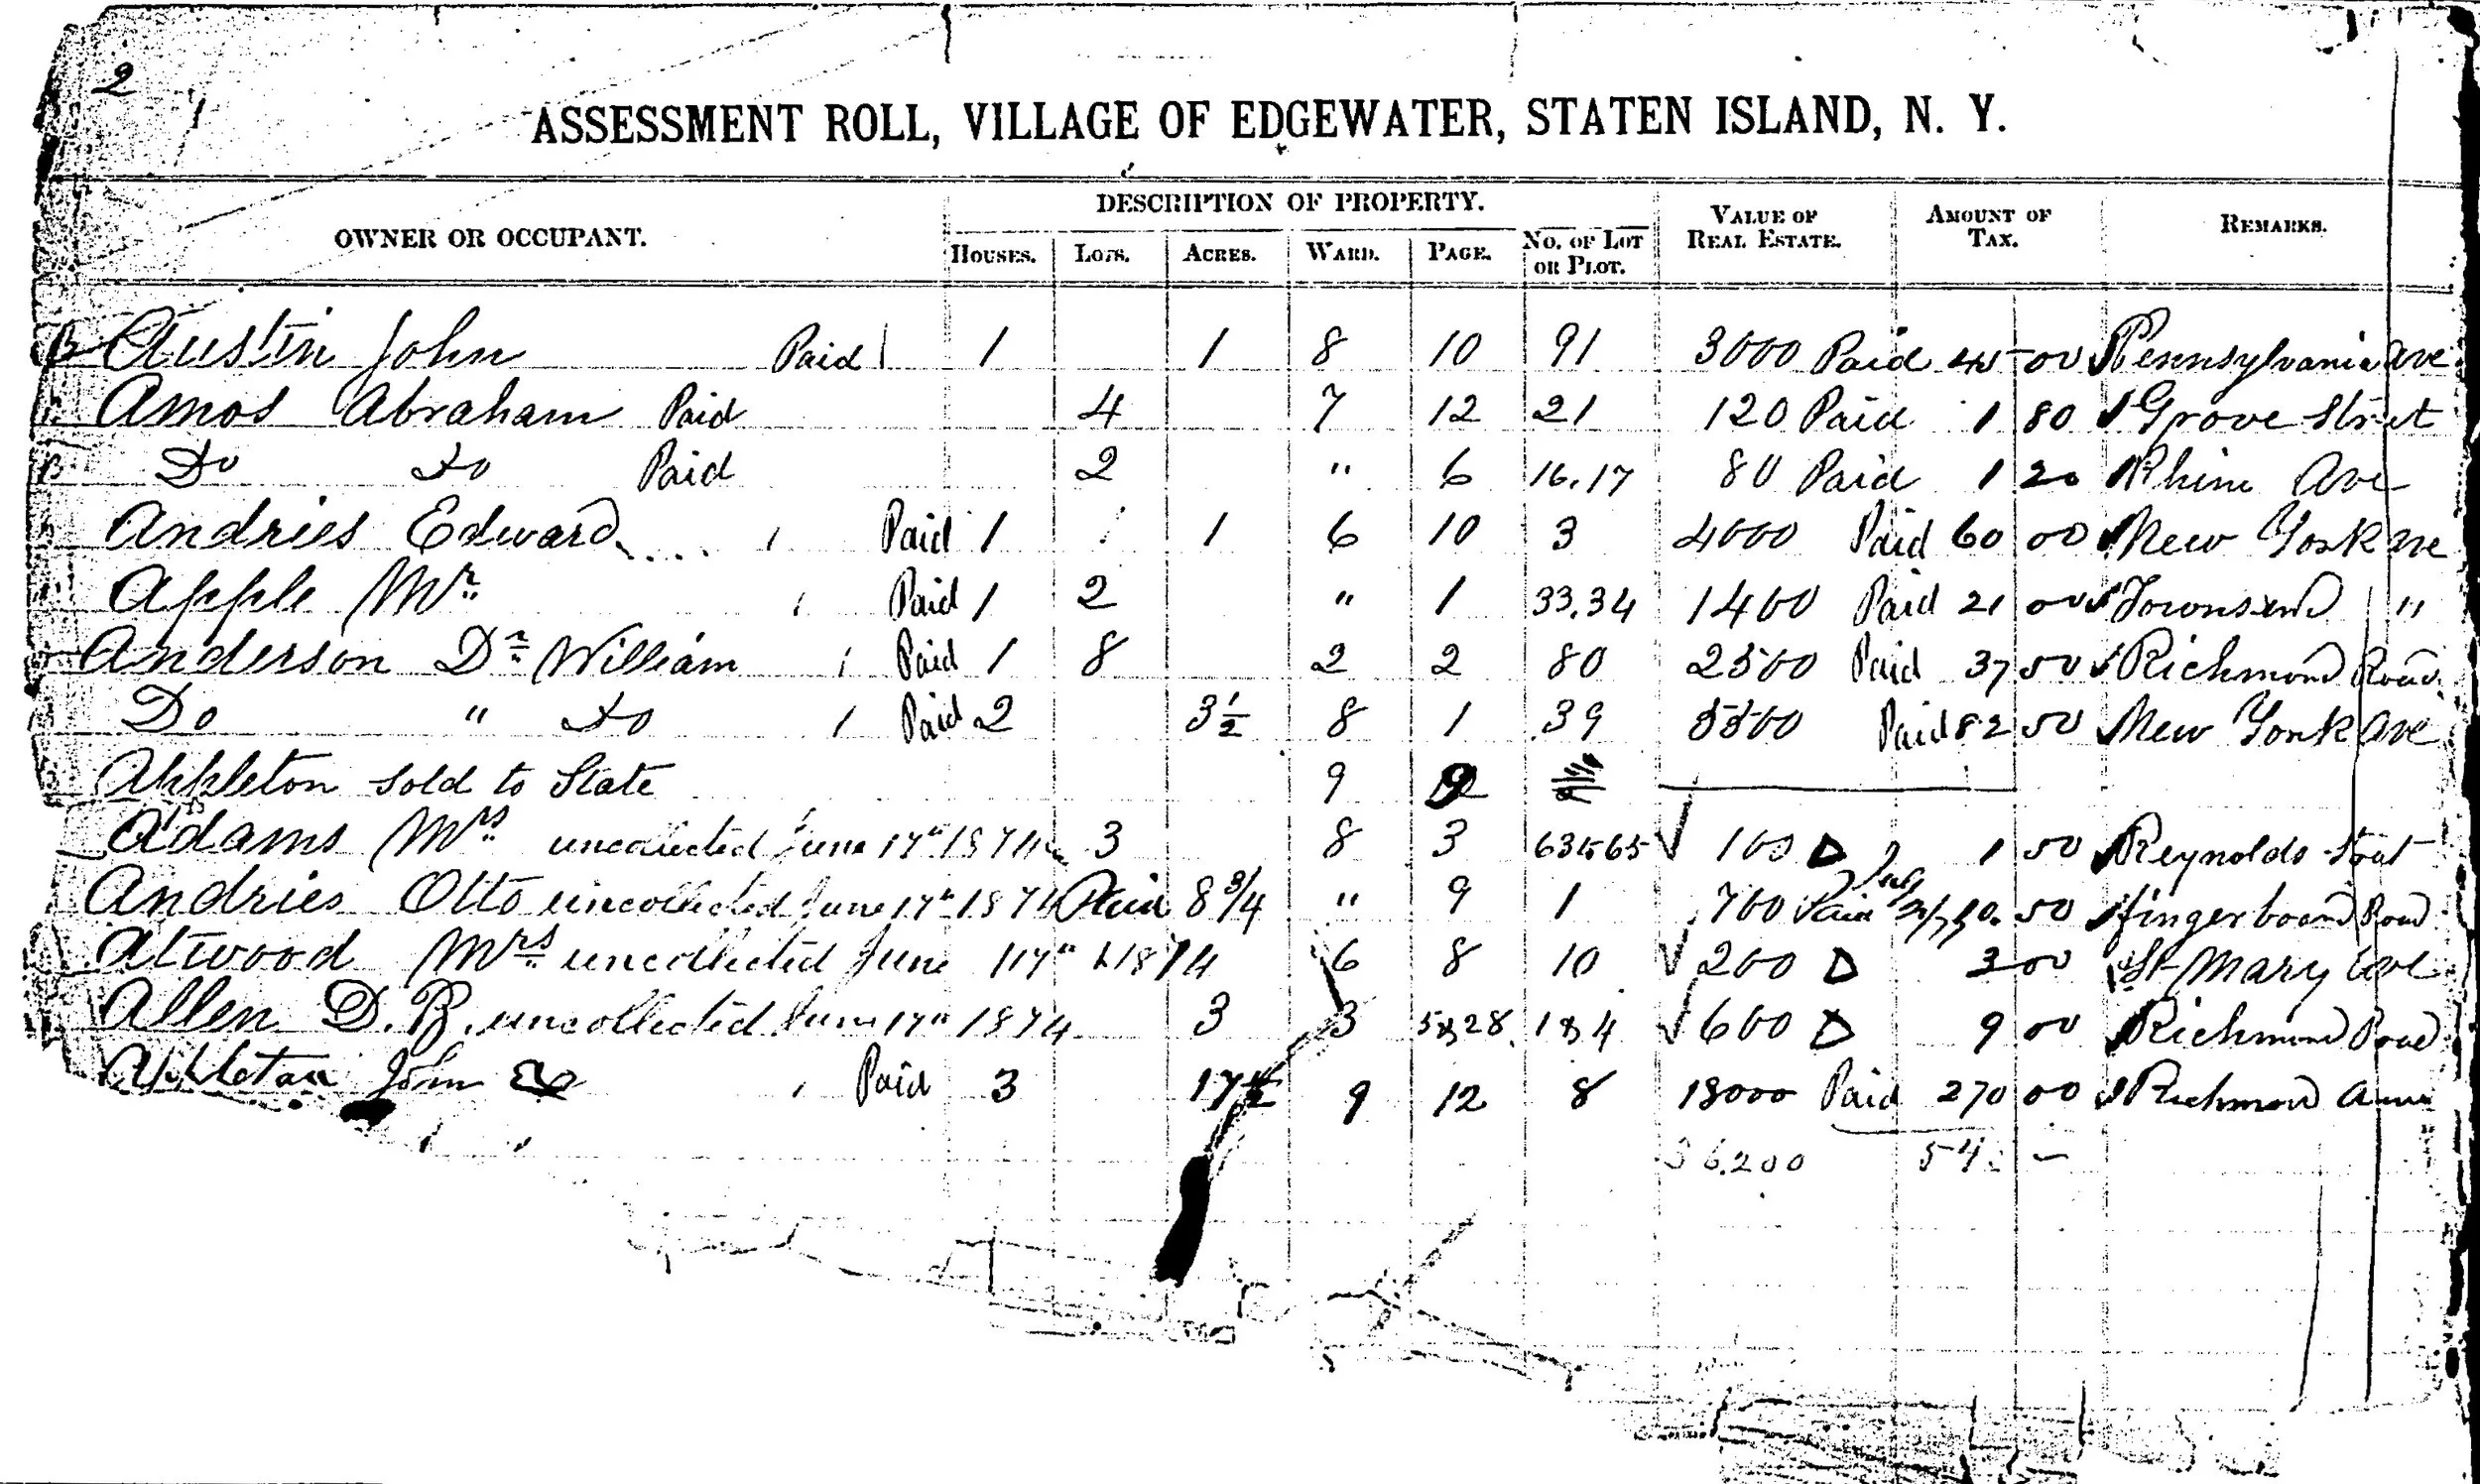 2
ASSESSMENT ROLL, VILLAGE OF EDGEWATER, STATEN ISLAND, N. Y.
OWNER OR OCCUPANT. DESCRIPTION OF PROPERTY. VALUE OF REAL ESTATE. AMOUNT OF TAX. REMARKS.
HOUSES. LOTS. ACRES. WARD. PAGE. NO. OF LOT OR PLOT.
Austin John Paid 1 1 8 10 91 3000 Paid 45 00 Pennsylvania Ave
Amos Abraham Paid 4 7 12 21 120 Paid 1 80 Grove Street
Do Do Paid 2 " 6 16.17 80 Paid 1 20 Rhine Ave
Andries Edward Paid 1 1 6 10 3 4000 Paid 60 00 New York Ave
Apple Mr Paid 1 2 " 1 33.34 1400 Paid 21 00 Townsend "
Anderson Dr William Paid 1 8 2 2 80 2500 Paid 37 50 Richmond Road
Do " Do Paid 2 3½ 8 1 39 5500 Paid 82 50 New York Ave
Appleton Sold to State 9
Adams Mrs uncollected June 17th 1874 3 8 3 100 D 1 50 Reynolds Street
Andries Otto uncollected June 17th 1874 Paid 8 3/4 " 9 1 700 Paid 50 Fingerboard Road
Atwood Mrs uncollected June 17th 1874 6 8 10 200 D 3 00 St Mary Ave
Allen D. B. uncollected June 17th 1874 3 3 5&28 1&4 600 D 9 00 Richmond Road
Appleton John Paid 3 17½ 9 12 8 18000 Paid 270 00 Richmond
36.200 54